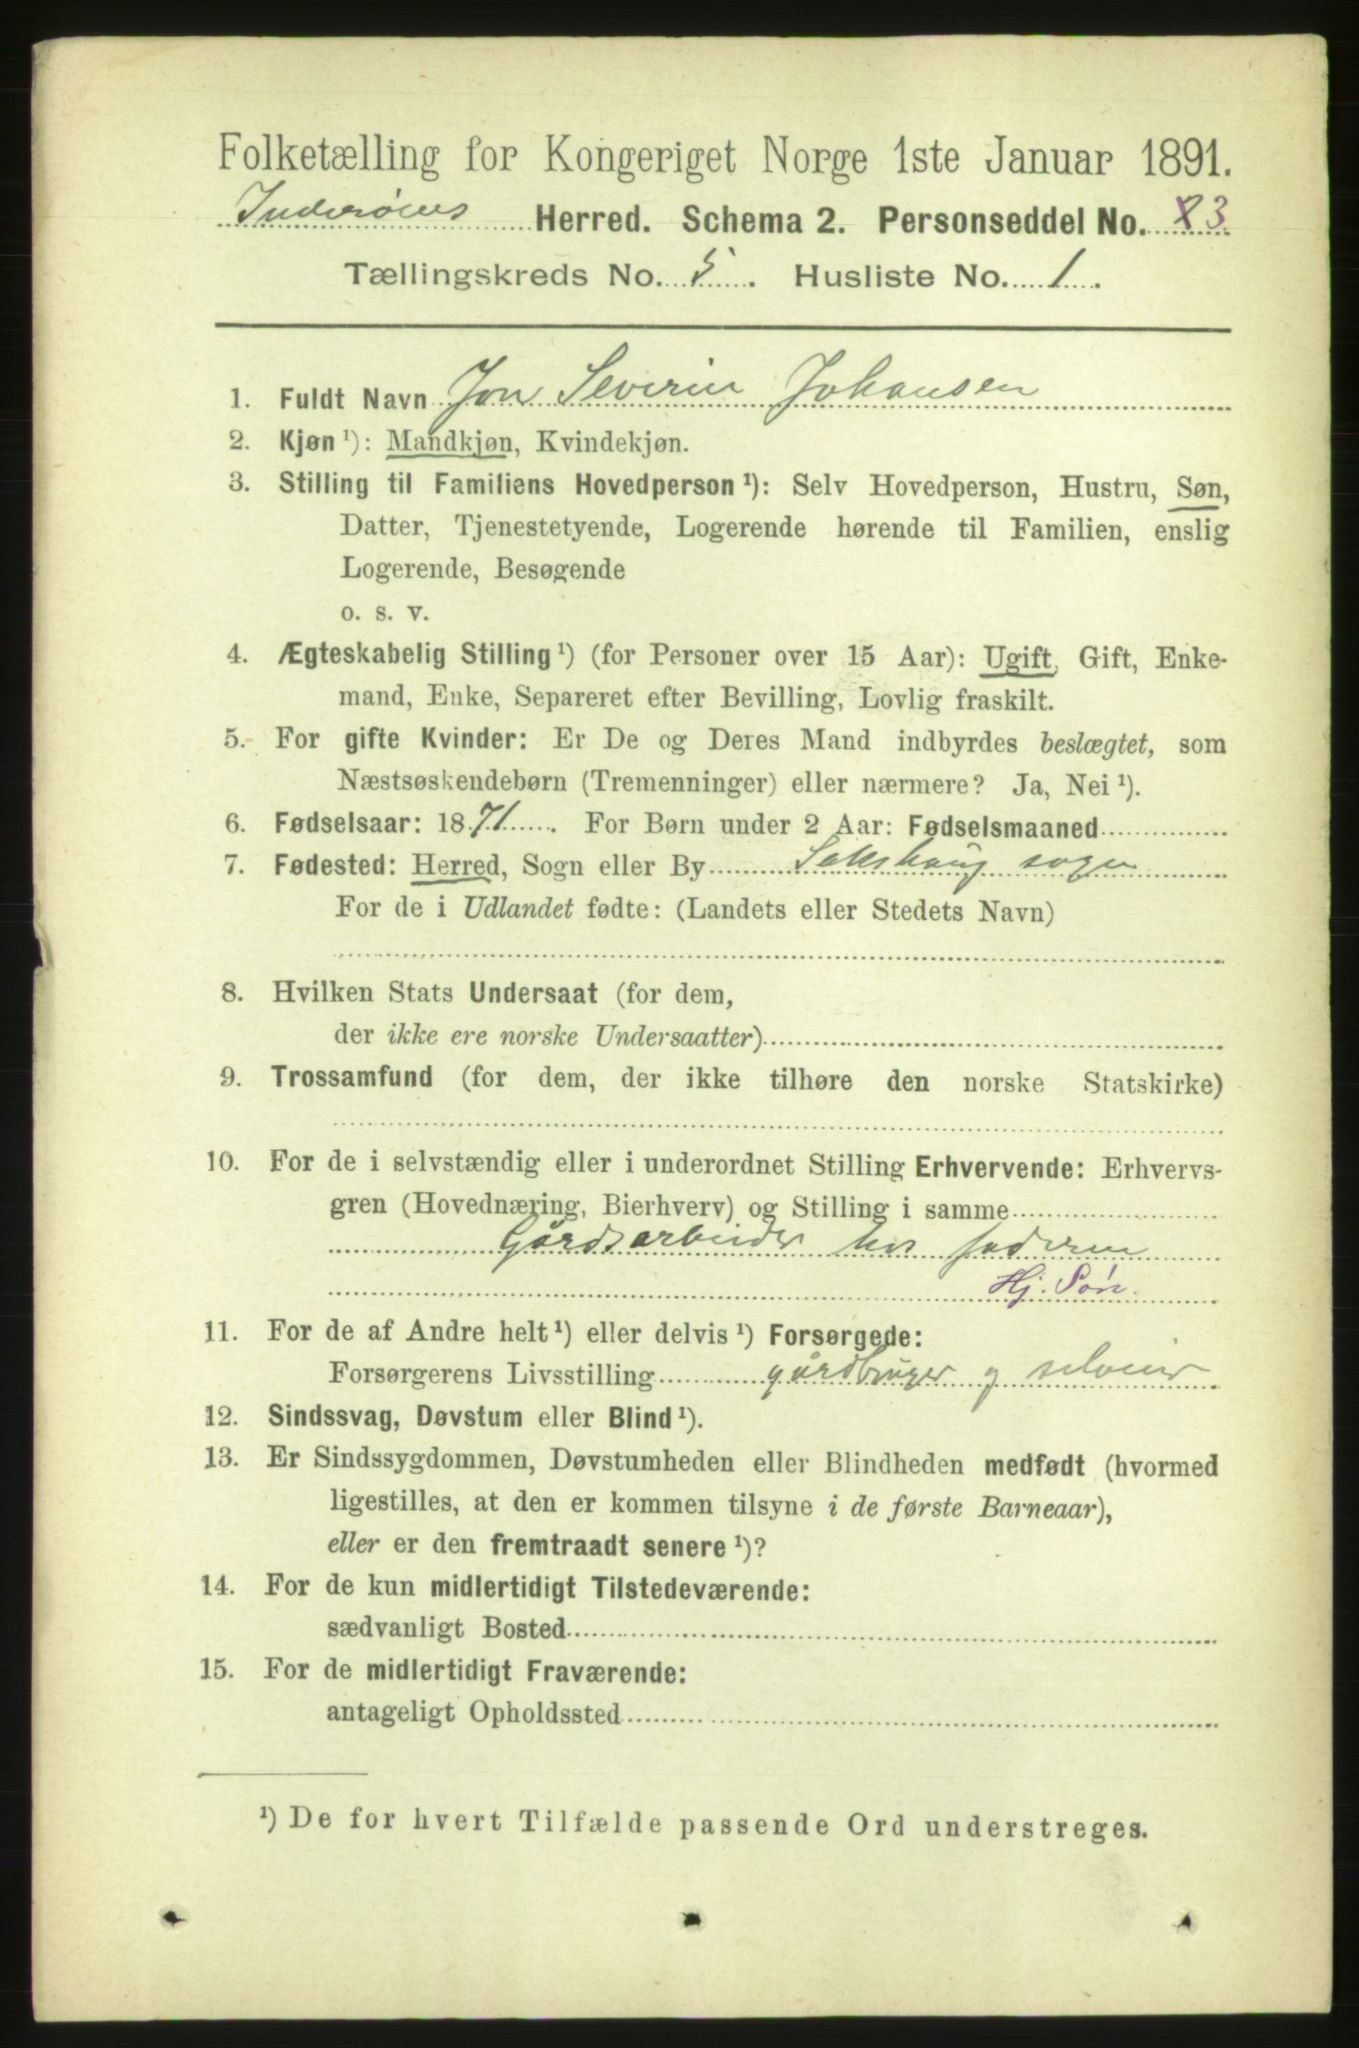 Folketælling for Kongeriget Norge 1ste Januar 1891.
Inderøens Herred. Schema 2. Personseddel No. 3
Tællingskreds No. 5. Husliste No. 1.
1. Fuldt Navn Jon Severin Johansen
2. Kjøn ¹): Mandkjøn, Kvindekjøn.
3. Stilling til Familiens Hovedperson ¹): Selv Hovedperson, Hustru, Søn,
Datter, Tjenestetyende, Logerende hørende til Familien, enslig
Logerende, Besøgende
o. s. v.
4. Ægteskabelig Stilling ¹) (for Personer over 15 Aar): Ugift, Gift, Enke-
mand, Enke, Separeret efter Bevilling, Lovlig fraskilt.
5. For gifte Kvinder: Er De og Deres Mand indbyrdes beslægtet, som
Næstsøskendebørn (Tremenninger) eller nærmere? Ja, Nei ¹).
6. Fødselsaar: 1871. For Børn under 2 Aar: Fødselsmaaned
7. Fødested: Herred, Sogn eller By Sakshaug sogn
For de i Udlandet fødte: (Landets eller Stedets Navn)
8. Hvilken Stats Undersaat (for dem,
der ikke ere norske Undersaatter)
9. Trossamfund (for dem, der ikke tilhøre den norske Statskirke)
10. For de i selvstændig eller i underordnet Stilling Erhvervende: Erhvervs-
gren (Hovednæring, Bierhverv) og Stilling i samme
Gårdsarbeider hos faderen
Hj. Søn.
11. For de af Andre helt ¹) eller delvis ¹) Forsørgede:
Forsørgerens Livsstilling gårdbruger og selveier
12. Sindssvag, Døvstum eller Blind ¹).
13. Er Sindssygdommen, Døvstumheden eller Blindheden medfødt (hvormed
ligestilles, at den er kommen tilsyne i de første Barneaar),
eller er den fremtraadt senere ¹)?
14. For de kun midlertidigt Tilstedeværende:
sædvanligt Bosted
15. For de midlertidigt Fraværende:
antageligt Opholdssted
¹) De for hvert Tilfælde passende Ord understreges.